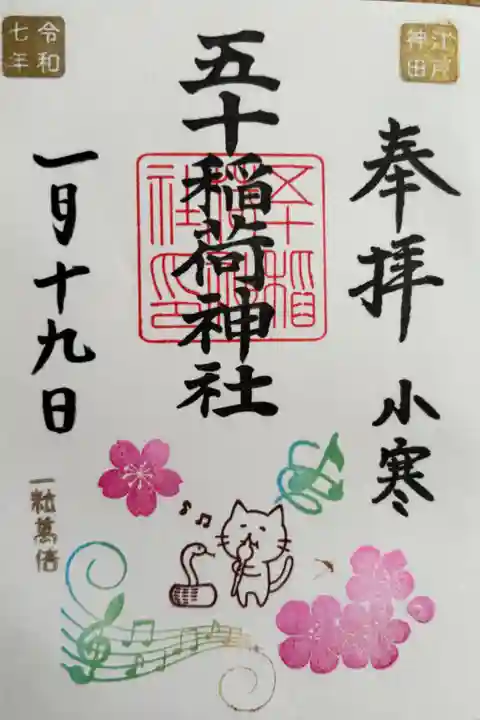 江戸
神田
奉拝
小寒
五十稲荷神社
五十稲
荷神
社印
令和
七年
一月十九日
一粒萬倍